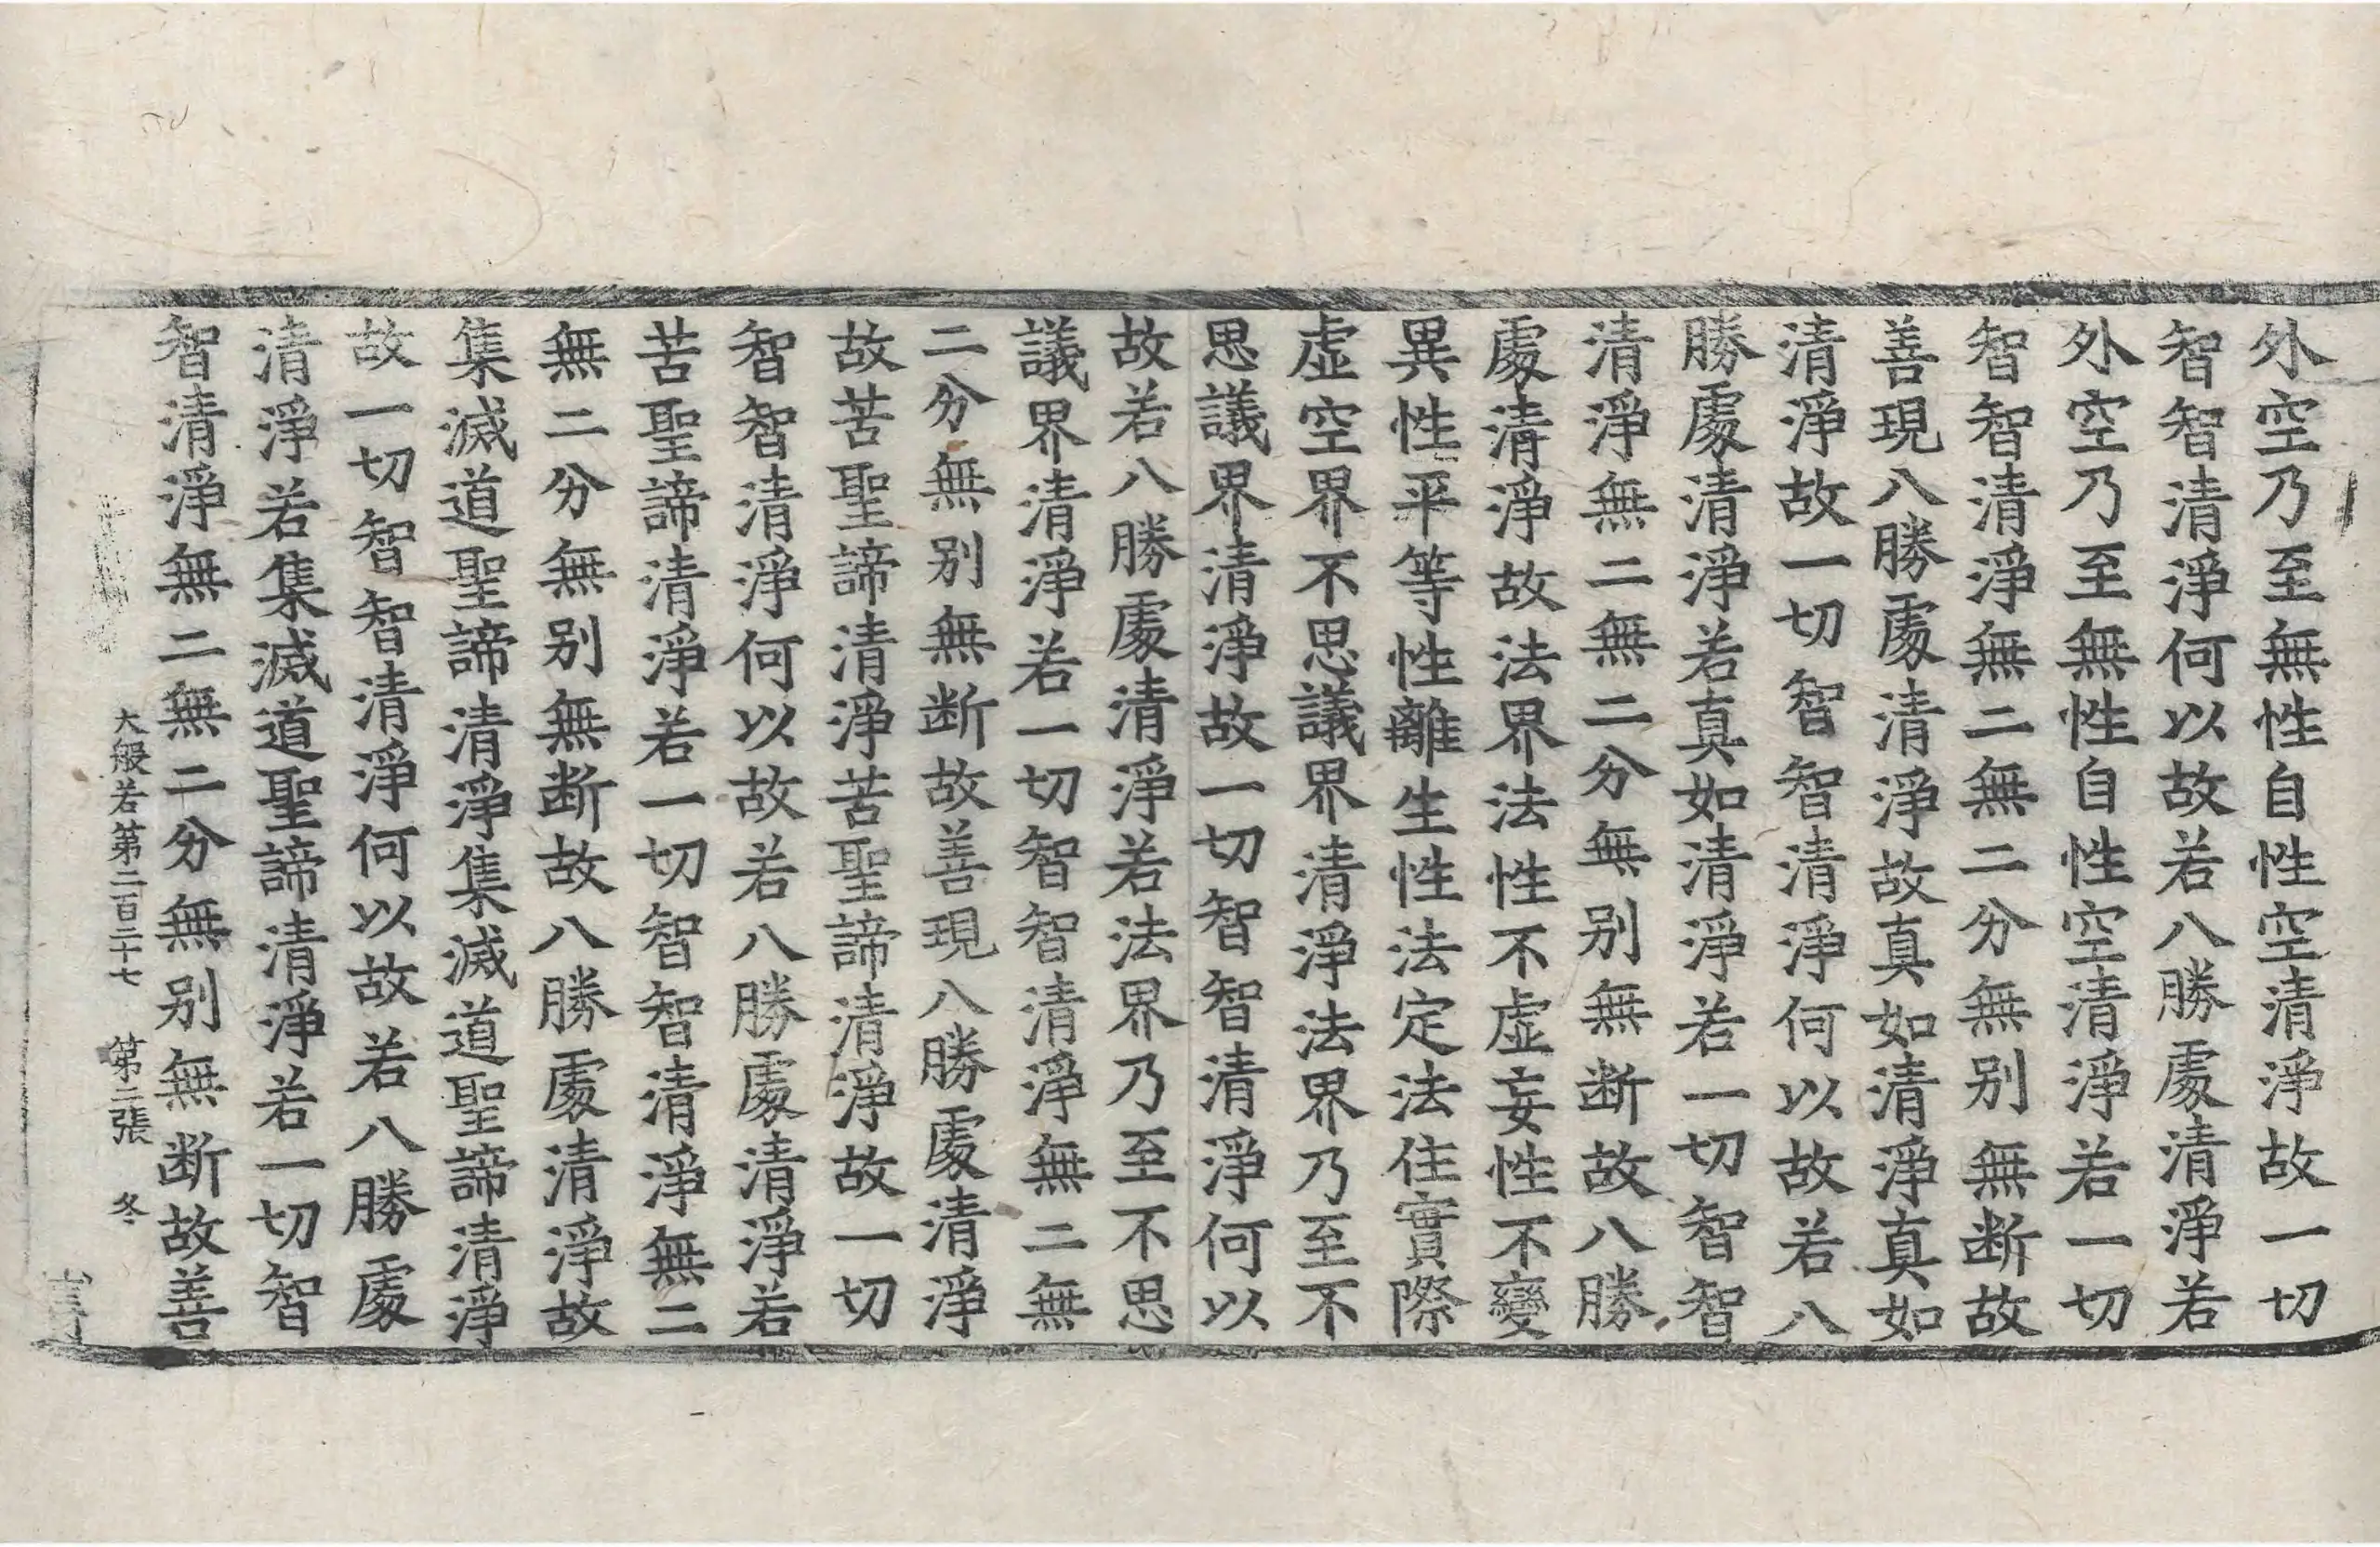 外空乃至無性自性空清淨故一切
智智清淨何以故若八勝處清淨若
外空乃至無性自性空清淨若一切
智智清淨無二無二分無别無断故
善現八勝處清淨故真如清淨真如
清淨故一切智智清淨何以故若八
勝處清淨若真如清淨若一切智智
清淨無二無二分無别無断故八勝
處清淨故法界法性不虛妄性不變
異性平等性離生性法定法住實際
虛空界不思議界清淨法界乃至不
思議界清淨故一切智智清淨何以
故若八勝處清淨若法界乃至不思
議界清淨若一切智智清淨無二無
二分無别無断故善現八勝處清淨
故苦聖諦清淨苦聖諦清淨故一切
智智清淨何以故若八勝處清淨若
苦聖諦清淨若一切智智清淨無二
無二分無别無断故八勝處清淨故
集滅道聖諦清淨集滅道聖諦清淨
故一切智智清淨何以故若八勝處
清淨若集滅道聖諦清淨若一切智
智清淨無二無二分無别無断故善
大般若第二百三十七 第二張 冬